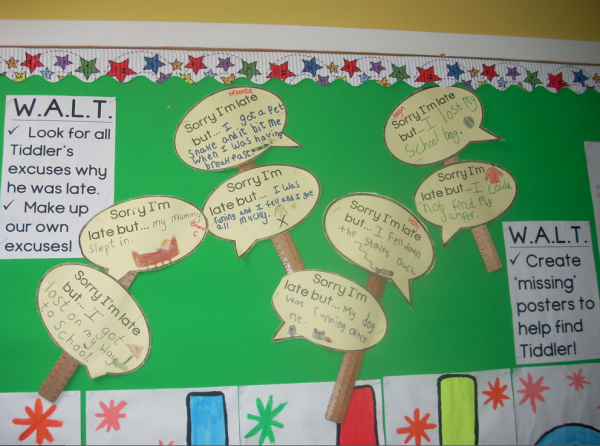 W.A.L.T.
✓ Look for all
Tiddler's
excuses why
he was late.
✓ Make up
our own
excuses!
Sorry I'm late
but... I got a pet
snake and it bit me
when I was having
breakfast
Sorry I'm late
but... I lost my
school bag.
Sorry I'm
late but... I was
runing and I fell and I got
all mucky.
Sorry I'm
late but... I could
not find my
jumper.
Sorry I'm
late but... my mummy
slept in.
Sorry I'm late
but... I fell down
the stairs ouch
Sorry I'm late
but... I got
lost on my way
to school.
Sorry I'm
late but... My dog
was running after
me.
W.A.L.T.
✓ Create
'missing'
posters to
help find
Tiddler!